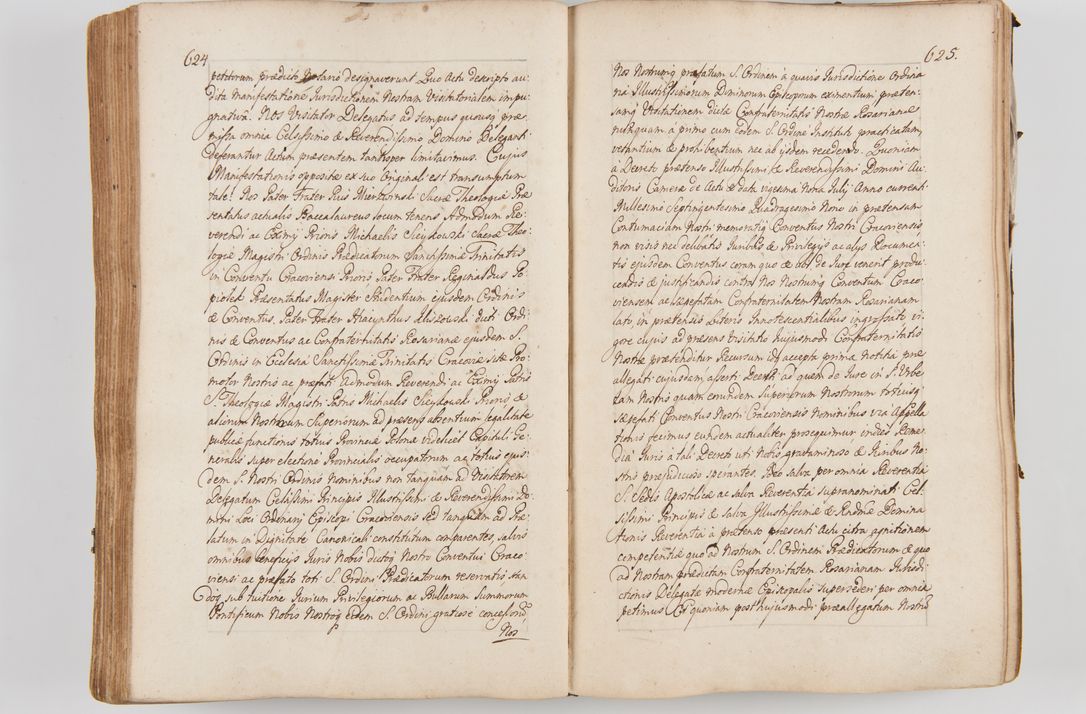 624
petitorum prædicto Notario designaverunt Quo Actu descripto au-
dita Manifestatione Jurisdictionem Nostram Visitatorialem impu-
gnativa. Nos Visitator Delegatus ad tempus quousq præ-
missa omnia Celsissimo & Reverendissimo Domino Deleganti
deferantur Actum præsentem tantisper limitavimus. Cujus
Manifestationis oppositæ ex suo Originali est transumptum
tale: Nos Pater Frater Pius Sacræ Theologiæ Præ-
sentatus actualis Baccalaureus locum tenens Admodum Re-
verendi ac Eximij Prioris Michaelis Sacræ Theo-
logiæ Magistri Ordinis Prædicatorum Sanctissimæ Trinitatis
in Conventu Cracoviensi Prioris Pater Frater Reginaldus Po-
piołek Præsentatus Magister Studentium ejusdem Ordinis
& Conventus, Pater Frater Hiacynthus dicti Ordi-
nis & Conventus ac Confraternitatis Rosarianæ ejusdem S.
Ordinis in Ecclesia Sanctissimæ Trinitatis Cracoviæ sitæ Pro-
motor Nostris ac præfati Admodum Reverendi ac Eximij Patris
S. Theologiæ Magistri Patris Michaelis Prioris &
aliorum Nostrorum Superiorum ad præsens absentium legalitate
publicæ functionis totius Provinciæ Polonæ videlicet Capituli Ge-
neralis super electione Provincialis occupatorum ac totius ejus-
dem S. Nostri Ordinis Nominibus non tanquam ad Visitatorem
Delegatum Celsissimi Principis Illustrissimi & Reverendissimi Do-
mini Loci Ordinarij Episcopi Cracoviensis sed tanquam ad Præ-
latum in Dignitate Canonicali constitutum comparentes, salvis
omnibus beneficijs Juris Nobis dictoq Nostro Conventui Craco-
viensi ac præfato toti S. Ordini Prædicatorum reservatis stan-
dog sub tuitione Jurium Privilegiorum ac Bullarum Summorum
Pontificum Nobis Nostroq eidem S. Ordini gratiose concessorū
Nos
625.
Nos Nostrumq præfatum S. Ordinem à quavis Jurisdictione Ordina
ria Illustrissimorum Dominorum Episcoporum eximentium præten-
samq Visitationem dictæ Confraternitatis Nostræ Rosarianæ
nusquam a primo cum eodem S. Ordine Instituti practicatam,
vetantium & prohibentium nec ab ijsdem recedendo. Quoniam
à Decreto prætenso Illustrissimi & Reverendissimi Domini Au-
ditoris Cameræ de Actu & data vigesima Nona Julij Anno currenti
Millesimo Septingentesimo Quadragesimo Nono in prætensam
Contumaciam Nostri memoratiq Conventus Nostri Cracoviensis
non visis nec delibatis Juribus & Privilegijs ac alijs Documen-
tis ejusdem Conventus coram quo & ubi de Jure venerit produ-
cendis & justificandis contra Nos Nostrumq Conventum Craco-
viensem ac sæpefatam Confraternitatem Nostram Rosarianam
lato, in prætensis Literis Innotescentialibus ingrossato vi-
gore cujus ad præsens Visitatio hujusmodi Confraternitatis
Nostræ prætenditur Recursum accepta prima notitia præ
allegati cujusdam asserti Decreti ad quem de Jure in S. Urbe
tam Nostris quam eorundem Superiorum Nostrorum totiusq
sæpefati Conventus Nostri Cracoviensis Nominibus via Appella
tionis fecimus eundem actualiter prosequimur indies Reme-
dia Juris à tali Decreto uti Nobis gravaminoso & Juribus No-
stris præjudicioso sperantes. Ideo salva per omnia Reverentia
S. Sedis Apostolicæ ac salva Reverentia supranominati Cel-
sissimi Principis & salva Illustrissimæ & Rndmæ Domina
tionis Reverentia à prætenso præsenti Actu citra agnitionem
competentiæ quo ad Nostrum S. Ordinem Prædicatorum & quo
ad Nostram prædictam Confraternitatem Rosarianam Jurisdi-
ctionis Delegatæ modernæ Episcopalis supersederi per omnia
petimus Et quoniam post hujusmodi præallegatum Nostrū